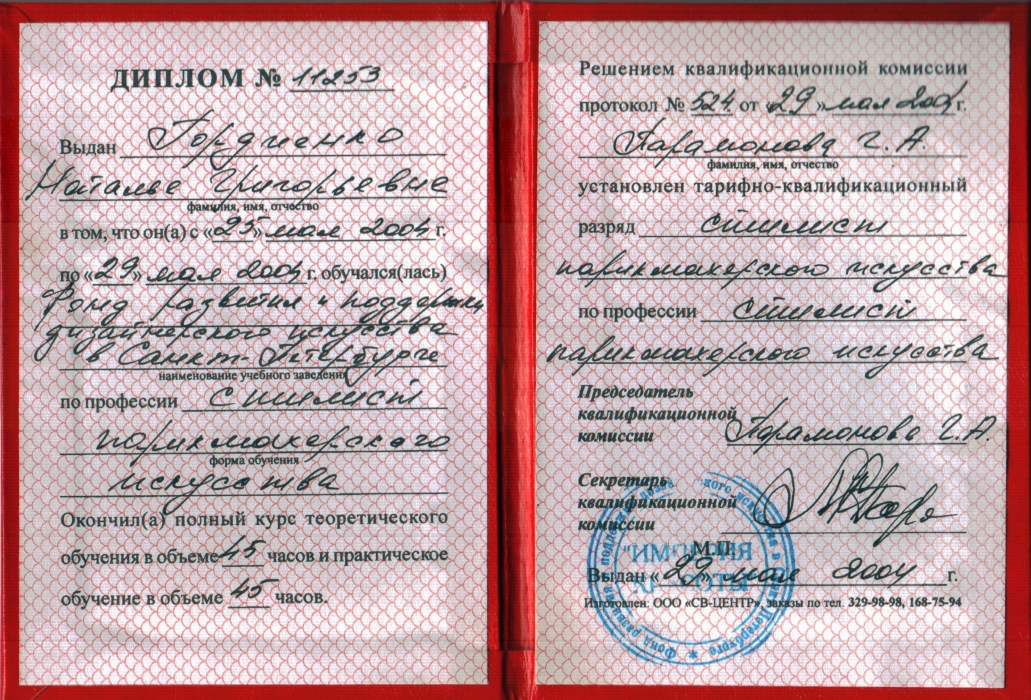 ДИПЛОМ № 11253
Выдан Гордиенко
Наталье Григорьевне
фамилия, имя, отчество
в том, что он(а) с «25» мая 2004 г.
по «29» мая 2004 г. обучался(лась)
Фонд развития и поддержки
дизайнерского искусства
в Санкт-Петербурге
наименование учебного заведения
по профессии стилист
парикмахерского
форма обучения
искусства
Окончил(а) полный курс теоретического
обучения в объеме 45 часов и практическое
обучение в объеме 45 часов.
Решением квалификационной комиссии
протокол № 524 от «29» мая 2004 г.
Парамонова Г. А.
фамилия, имя, отчество
установлен тарифно-квалификационный
разряд стилист
парикмахерского искусства
по профессии стилист
парикмахерского искусства
Председатель
квалификационной
комиссии Парамонова Г.А.
Секретарь
квалификационной
комиссии
М.П.
"ИМПЕРИЯ
КРАСОТЫ"
Выдан «29» мая 2004 г.
Изготовлен: ООО «СВ-ЦЕНТР», заказы по тел. 329-98-98, 168-75-94